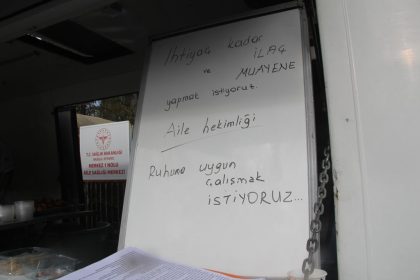 İhtiyaç kadar
İLAÇ
ve
MUAYENE
yapmak istiyoruz.
Aile hekimliği
Ruhuna uygun
çalışmak
İSTİYORUZ...
T.C. SAĞLIK BAKANLIĞI
MERKEZ 1 NOLU
AİLE SAĞLIĞI MERKEZİ